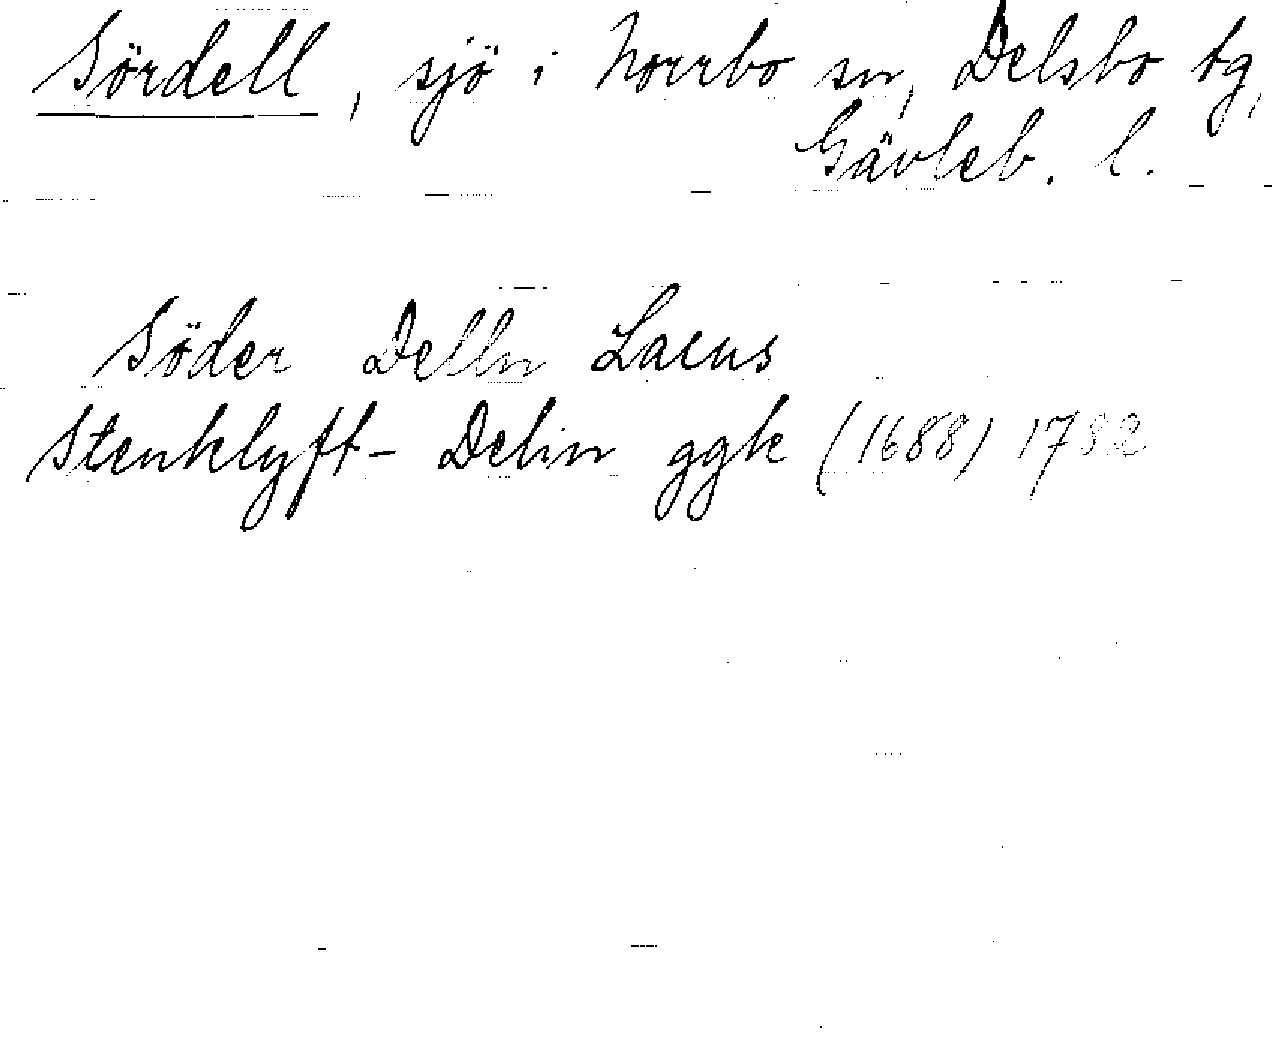 Sördell, sjö i Norrbo sn, Delsbo tg,
Gävleb. l.
Söder Delln Lacus
Stenklyft-Delin ggk (1688) 1732